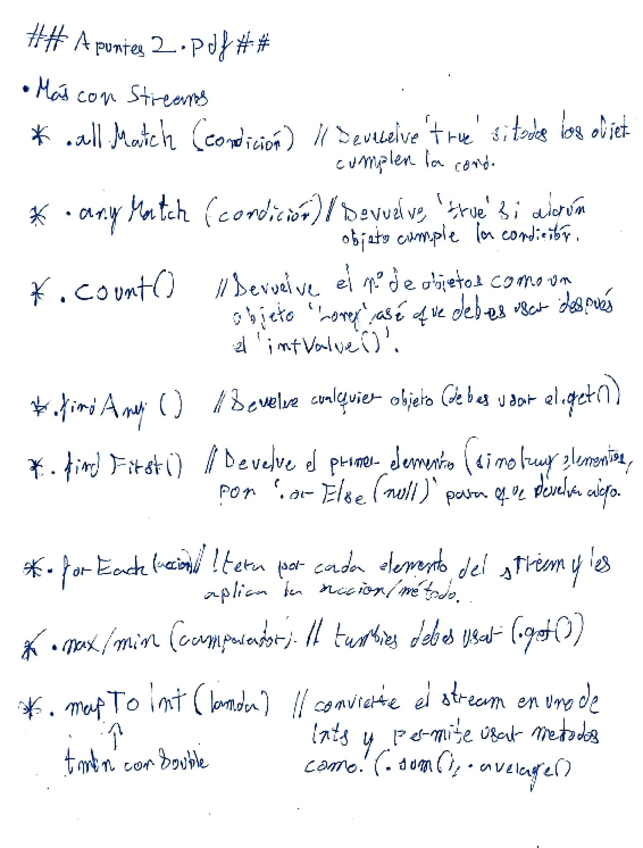 ## Apuntes 2.pdf ##
• Más con Streams
* .allMatch (condición) // Devuelve 'true' si todos los objet
cumplen la cond.
* .anyMatch (condición) // Devuelve 'true' si algún
objeto cumple la condición.
* .count() // Devuelve el nº de objetos como un
objeto 'Long', asé que debes usar después
el 'intValue()'.
* .findAny () // Devuelve cualquier objeto (debes usar el .get())
* .findFirst() // Develve el primer elemento (si no hay elementos,
pon '.orElse(null)' para que devuelva algo.
* .forEach (accion) // Itera por cada elemento del stream y les
aplica la accion/método.
* .max/min (comparador). // tambies debes usar (.get())
* .mapToInt (lamda) // convierte el stream en uno de
↑ Ints y permite usar metodos
tmbn con Double como: (.sum(), .average()